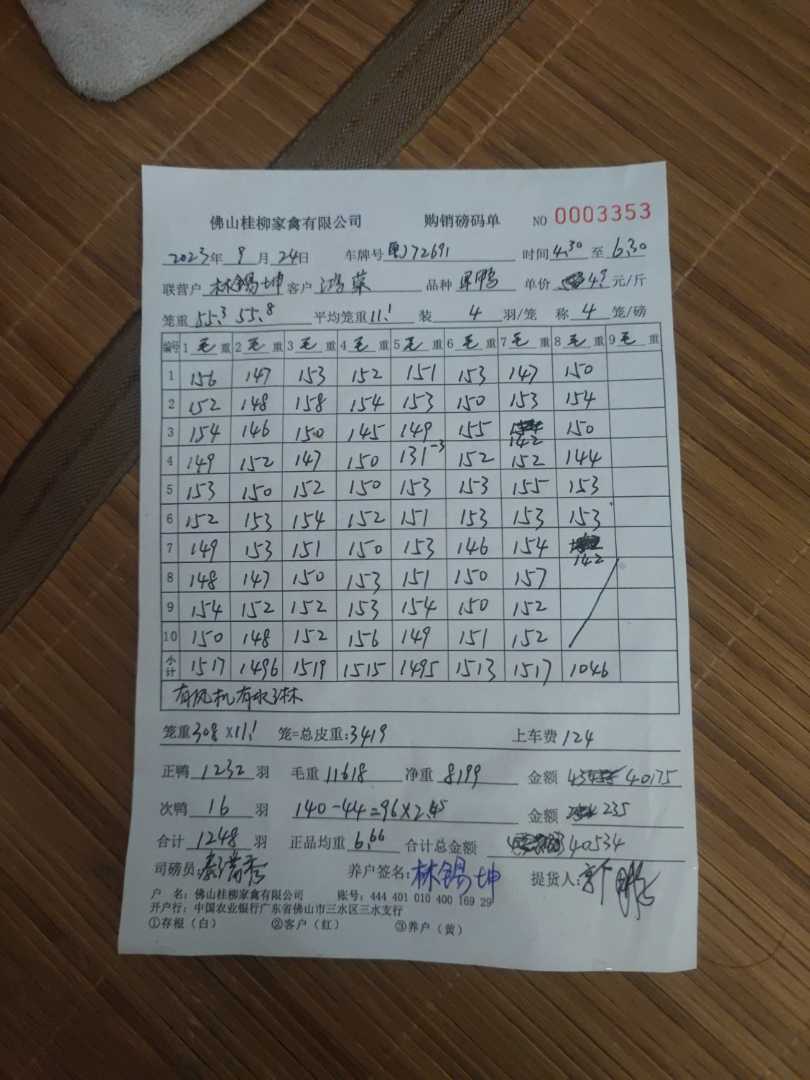 佛山桂柳家禽有限公司 购销磅码单 NO 0003353
2023年 9月 24日 车牌号 粤J72691 时间 4.30 至 6.30
联营户 林锡坤 客户 鸿 品种 用鸭 单价 4.9 元/斤
笼重 55.3 55.8 平均笼重 11.1 装 4 羽/笼 称 4 笼/磅
编号 1毛重 2毛重 3毛重 4毛重 5毛重 6毛重 7毛重 8毛重 9毛重
1 156 147 153 152 151 153 147 150
2 152 148 158 154 153 150 153 154
3 154 146 150 145 149 155 142 150
4 149 152 147 150 131-3 152 152 144
5 153 150 152 150 153 153 155 153
6 152 153 154 152 151 153 153 153
7 149 153 151 150 153 146 154 142
8 148 147 150 153 151 150 157
9 154 152 152 153 154 150 152
10 150 148 152 156 149 151 152
小计 1517 1496 1519 1515 1495 1513 1517 1046
有风机有水淋
笼重 308×11.1 笼=总皮重:3419 上车费 124
正鸭 1232 羽 毛重 11618 净重 8199 金额 40175
次鸭 16 羽 140-44=96×2.45 金额 235
合计 1248 羽 正品均重 6.66 合计总金额 40534
司磅员: 养户签名: 林锡坤 提货人:
户 名: 佛山桂柳家禽有限公司 账号: 444 401 010 400 169 29
开户行: 中国农业银行广东省佛山市三水区三水支行
①存根(白) ②客户(红) ③养户(黄)